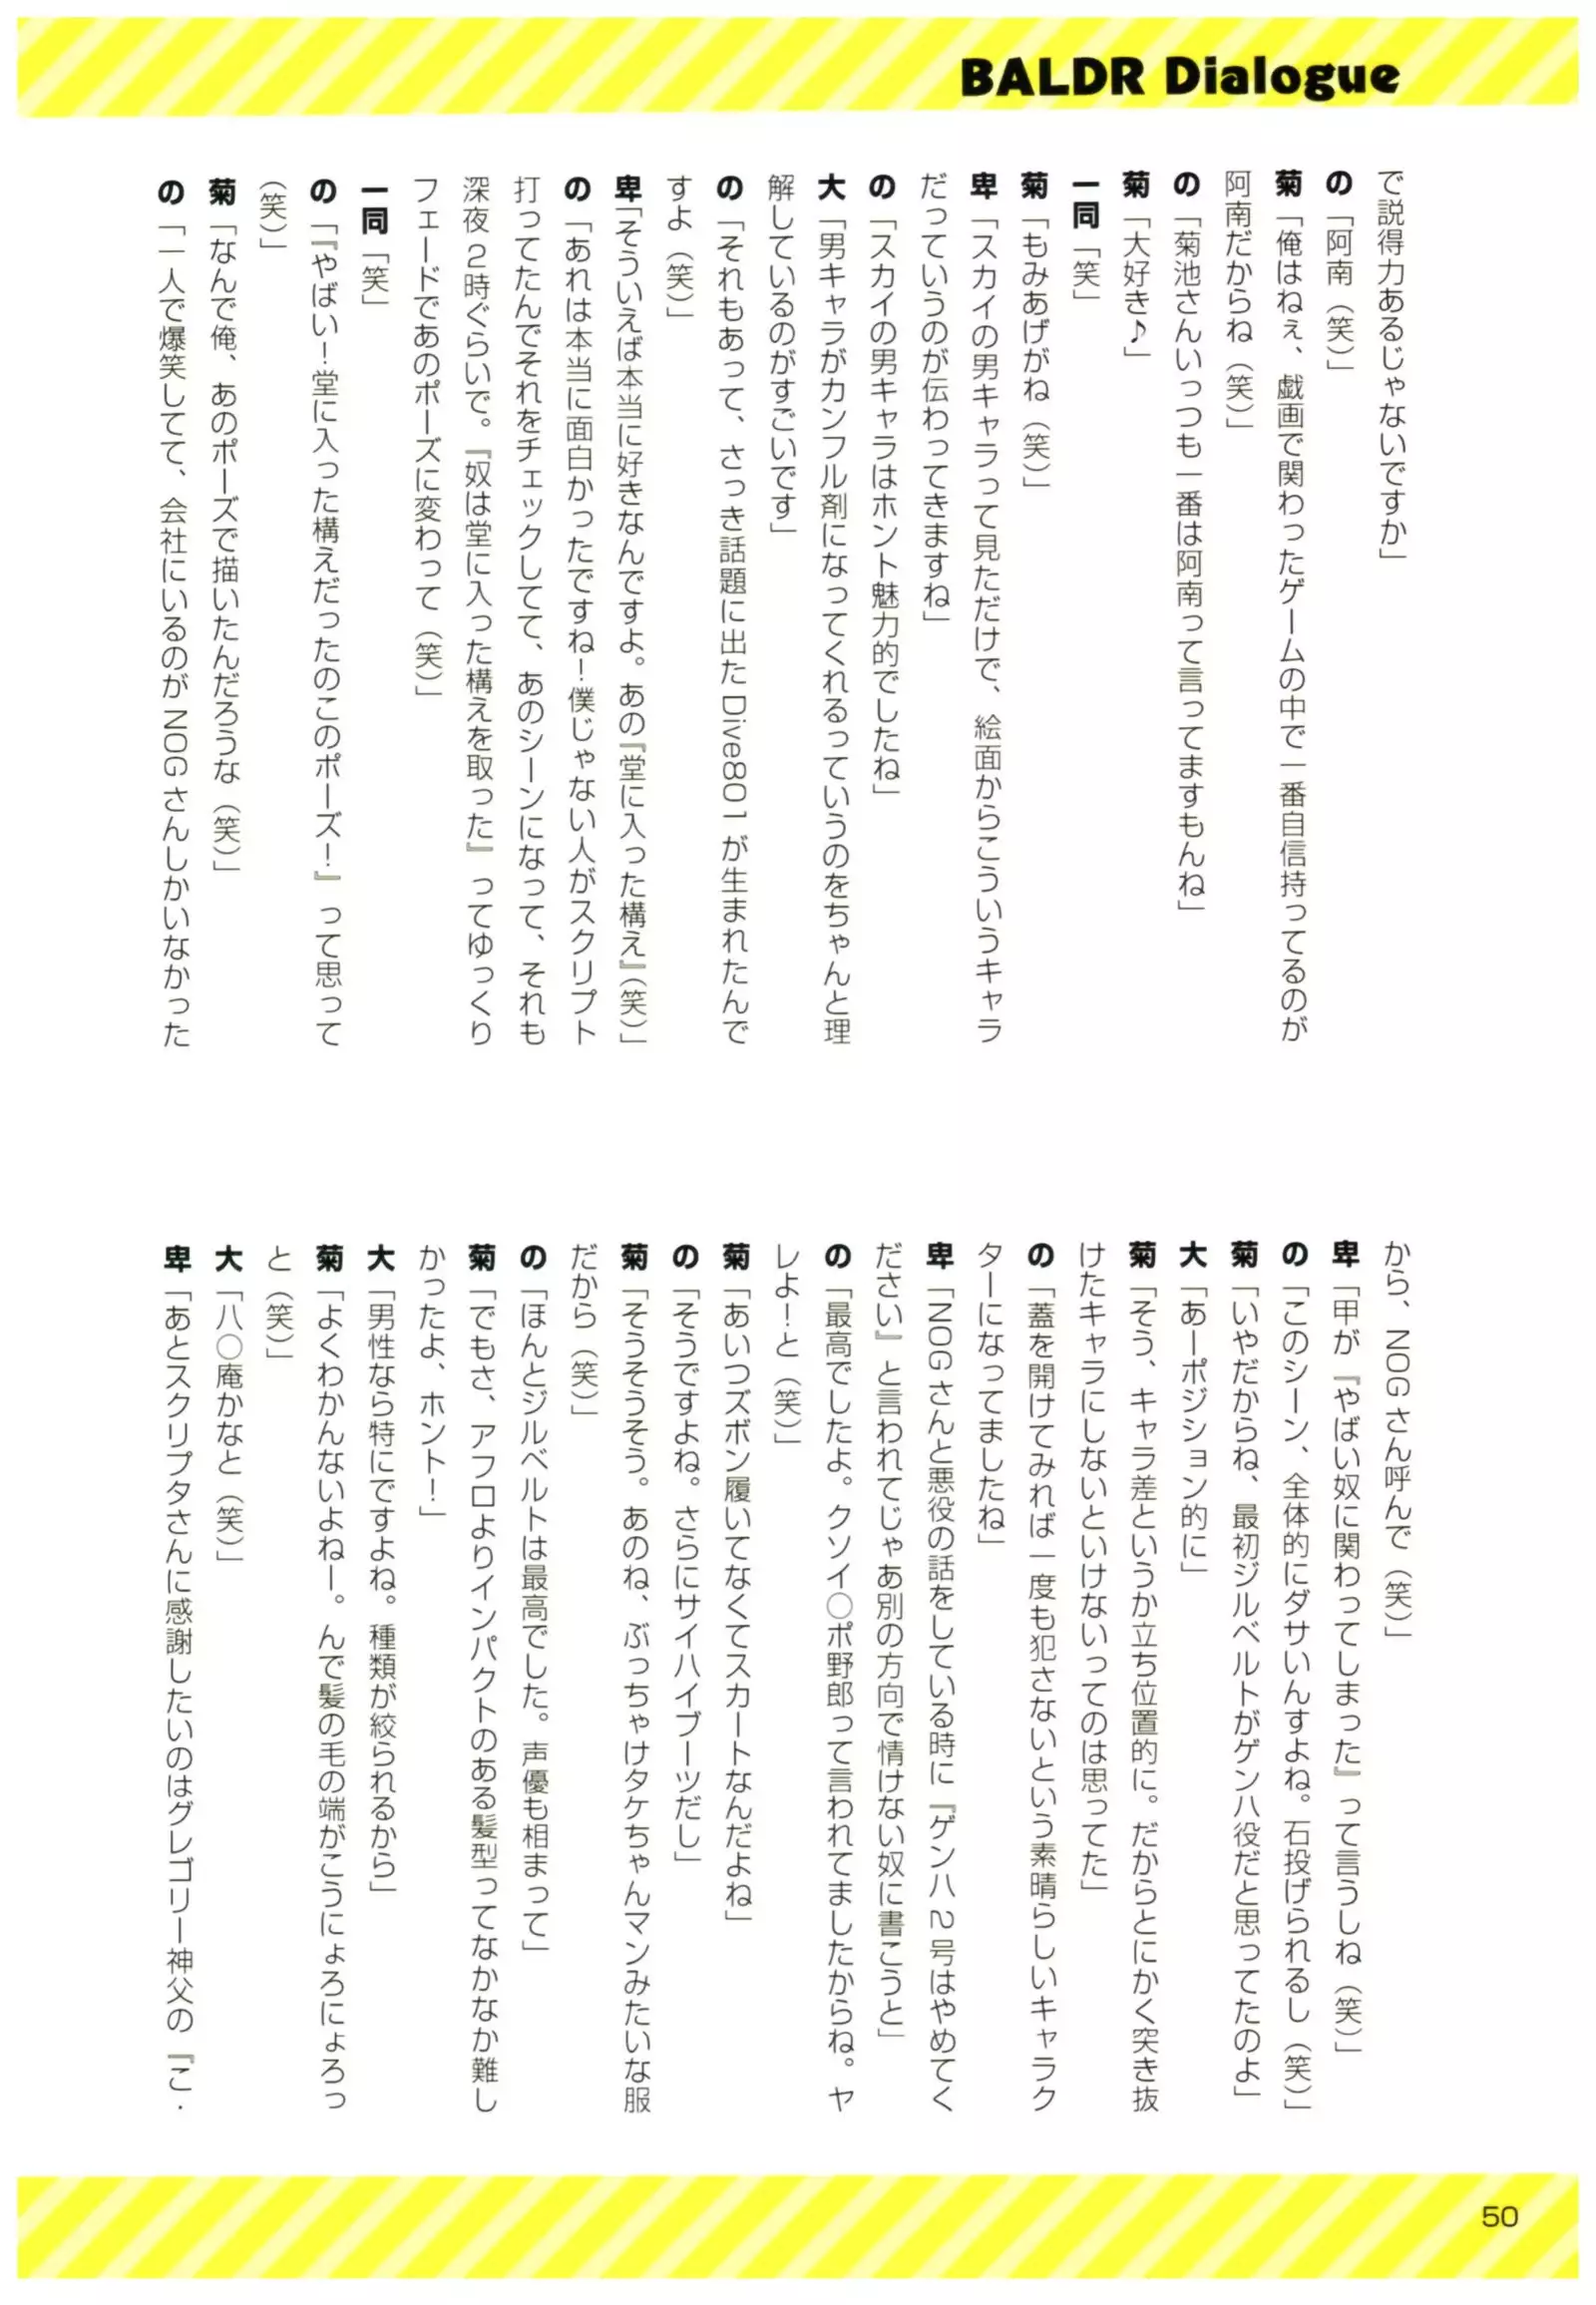 BALDR Dialogue
で説得力あるじゃないですか」
の「阿南（笑）」
菊「俺はねぇ、戯画で関わったゲームの中で一番自信持ってるのが
阿南だからね（笑）」
の「菊池さんいっつも一番は阿南って言ってますもんね」
菊「大好き♪」
一同「笑」
菊「もみあげがね（笑）」
卑「スカイの男キャラって見ただけで、絵面からこういうキャラ
だっていうのが伝わってきますね」
の「スカイの男キャラはホント魅力的でしたね」
大「男キャラがカンフル剤になってくれるっていうのをちゃんと理
解しているのがすごいです」
の「それもあって、さっき話題に出た Dive801 が生まれたんで
すよ（笑）」
卑「そういえば本当に好きなんですよ。あの『堂に入った構え』（笑）」
の「あれは本当に面白かったですね！僕じゃない人がスクリプト
打ってたんでそれをチェックしてて、あのシーンになって、それも
深夜 2 時ぐらいで。『奴は堂に入った構えを取った』ってゆっくり
フェードであのポーズに変わって（笑）」
一同「笑」
の「『やばい！堂に入った構えだったのこのポーズ！』って思って
（笑）」
菊「なんで俺、あのポーズで描いたんだろうな（笑）」
の「一人で爆笑してて、会社にいるのが NOG さんしかいなかった
から、NOG さん呼んで（笑）」
卑「甲が『やばい奴に関わってしまった』って言うしね（笑）」
の「このシーン、全体的にダサいんすよね。石投げられるし（笑）」
菊「いやだからね、最初ジルベルトがゲンハ役だと思ってたのよ」
大「あーポジション的に」
菊「そう、キャラ差というか立ち位置的に。だからとにかく突き抜
けたキャラにしないといけないってのは思ってた」
の「蓋を開けてみれば一度も犯さないという素晴らしいキャラク
ターになってましたね」
卑「NOG さんと悪役の話をしている時に『ゲンハ 2 号はやめてく
ださい』と言われてじゃあ別の方向で情けない奴に書こうと」
の「最高でしたよ。クソイ○ポ野郎って言われてましたからね。ヤ
レよ！と（笑）」
菊「あいつズボン履いてなくてスカートなんだよね」
の「そうですよね。さらにサイハイブーツだし」
菊「そうそうそう。あのね、ぶっちゃけタケちゃんマンみたいな服
だから（笑）」
の「ほんとジルベルトは最高でした。声優も相まって」
菊「でもさ、アフロよりインパクトのある髪型ってなかなか難し
かったよ、ホント！」
大「男性なら特にですよね。種類が絞られるから」
菊「よくわかんないよねー。んで髪の毛の端がこうにょろにょろっ
と（笑）」
大「八○庵かなと（笑）」
卑「あとスクリプタさんに感謝したいのはグレゴリー神父の『こ・
50